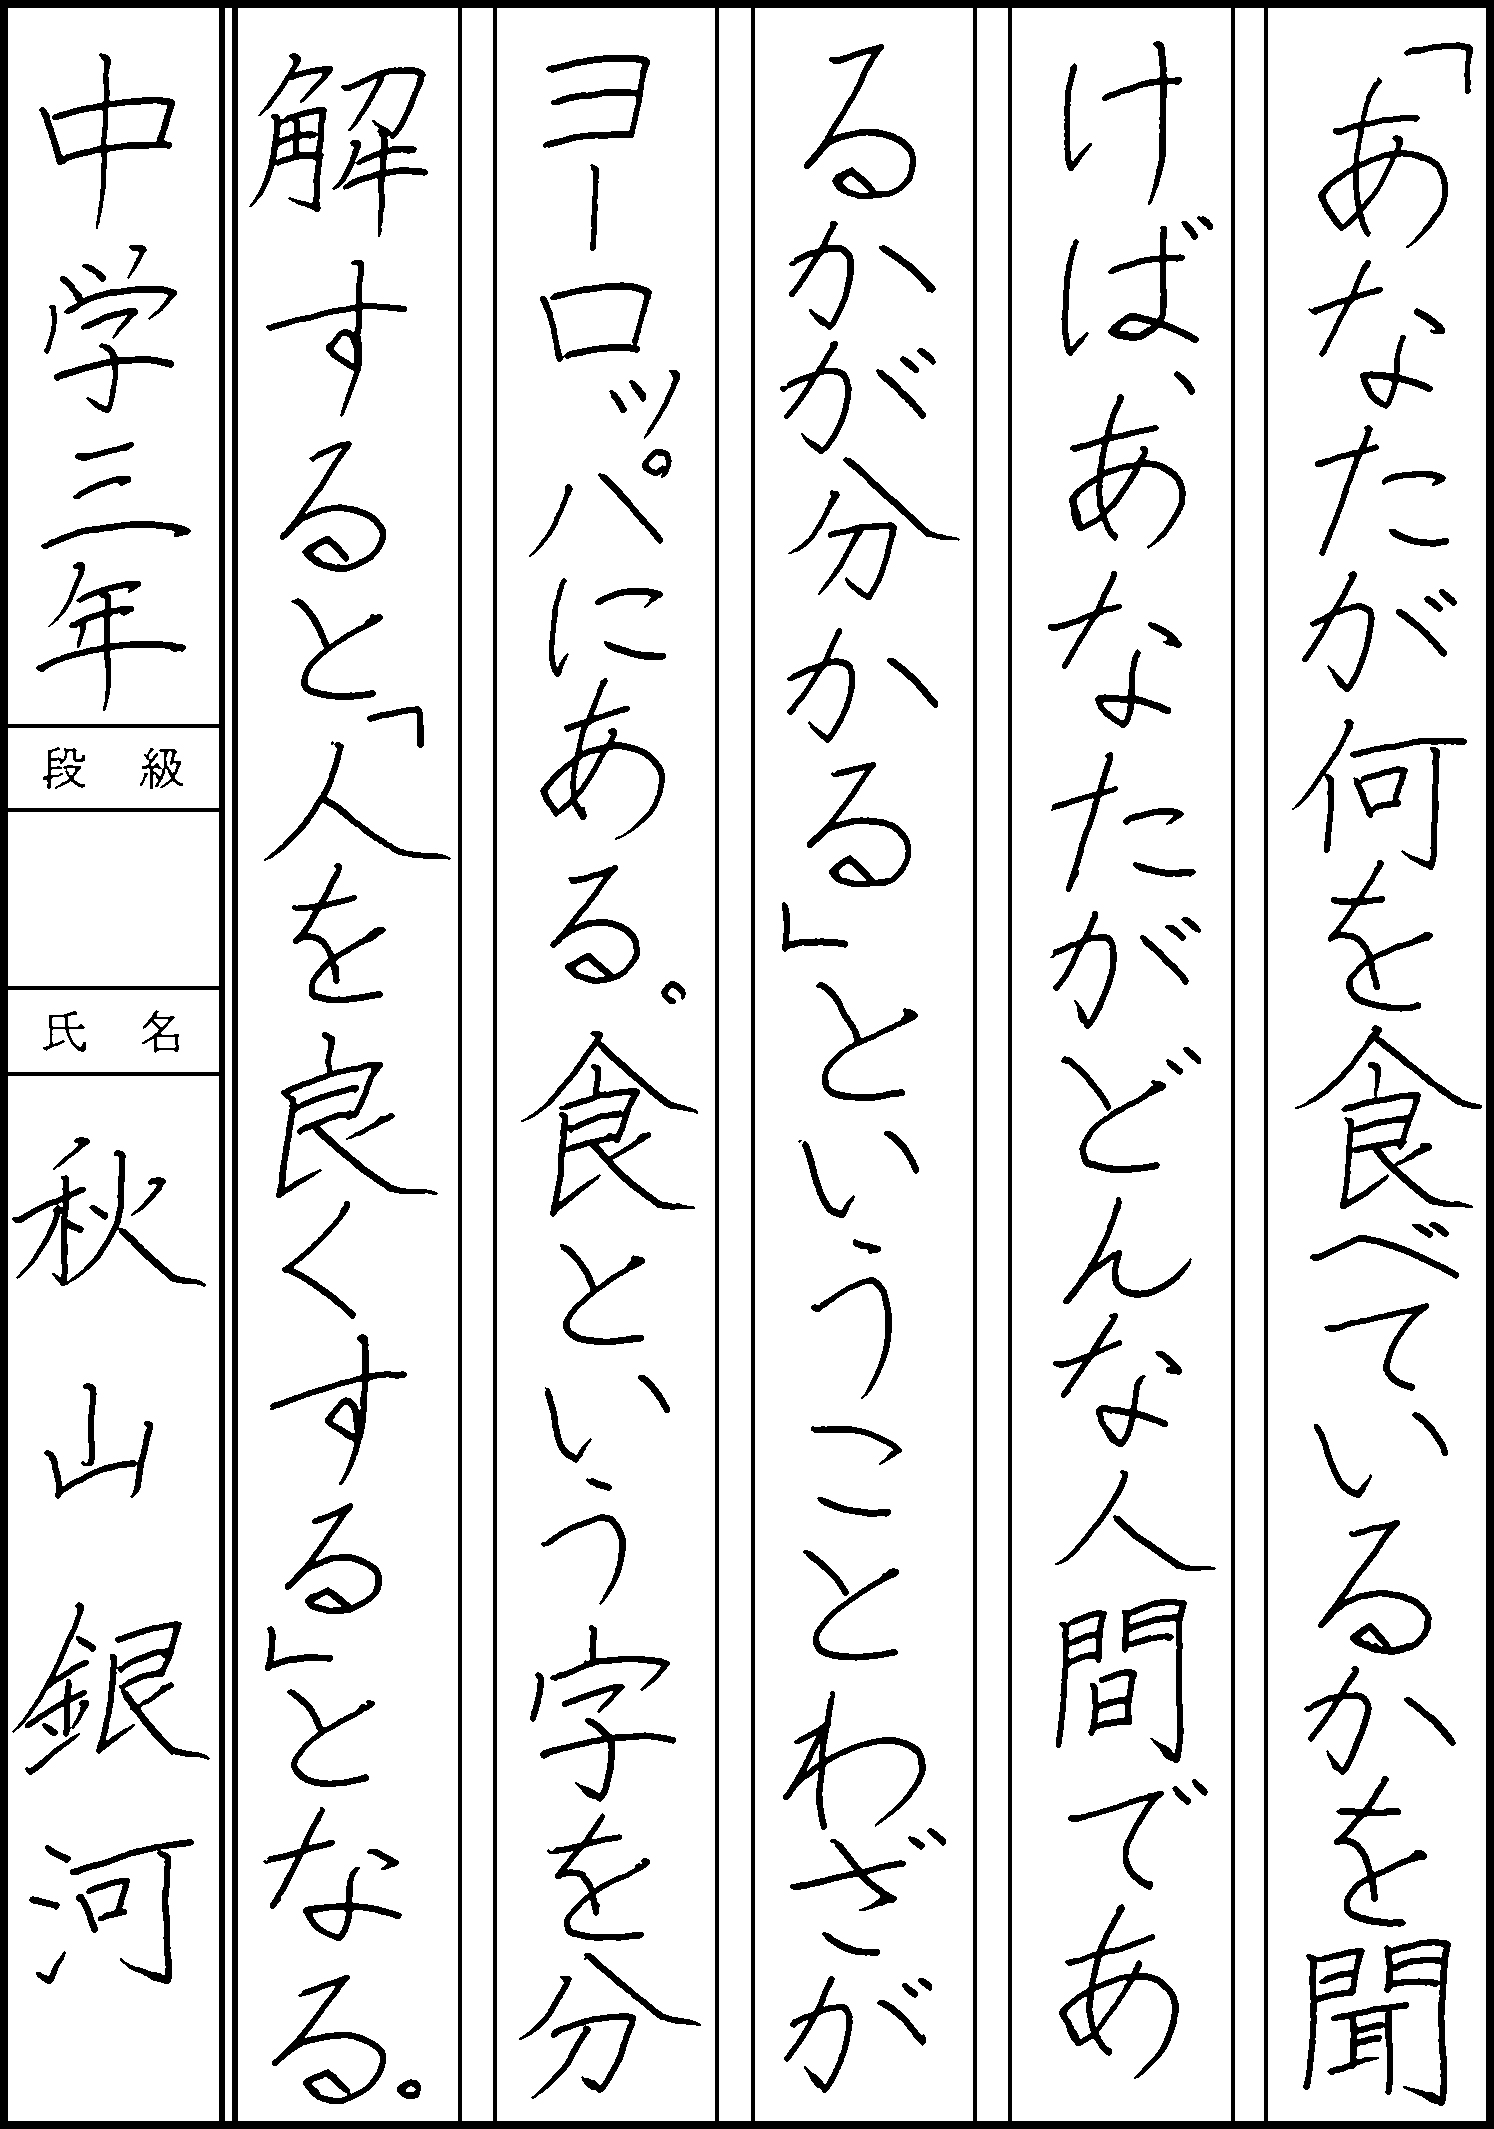 「あなたが何を食べているかを聞
けば、あなたがどんな人間であ
るかが分かる」ということわざが
ヨーロッパにある。食という字を分
解すると「人を良くする」となる。
中学三年
段級
氏名
秋山銀河